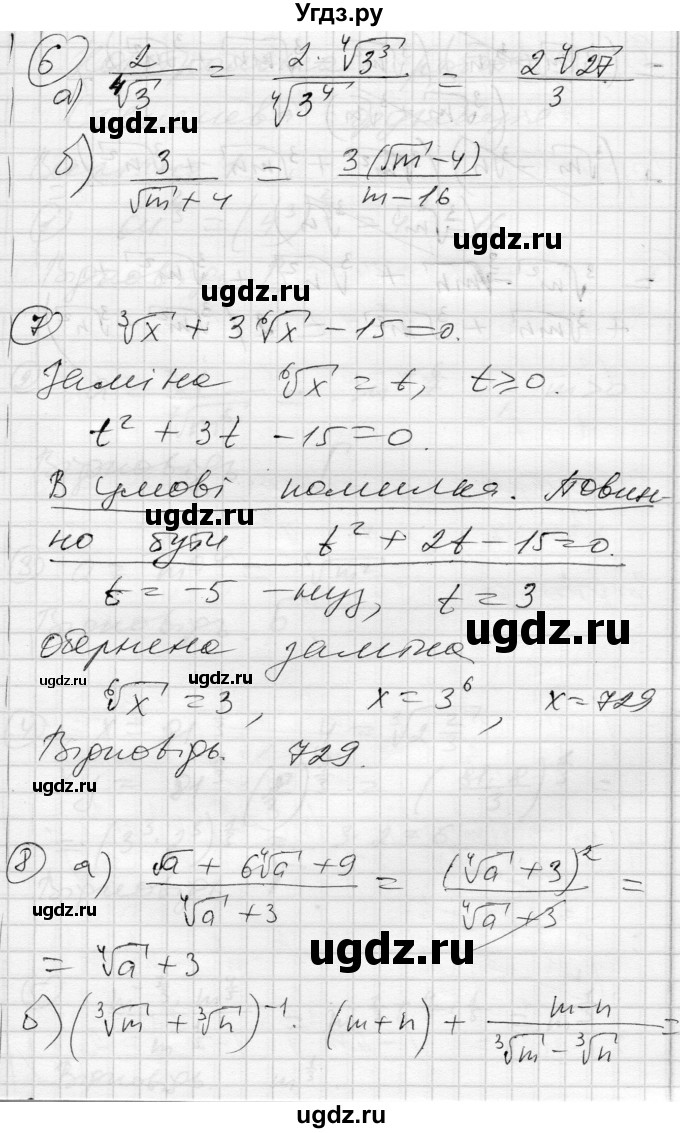 Угдз.ру
6
а) 2/⁴√3 = 2·⁴√3³/⁴√3⁴ = 2·⁴√27/3
ugdz.ru
ugdz.ru
б) 3/(√m + 4) = 3(√m − 4)/(m − 16)
ugdz.ru
7 ³√x + 3⁶√x − 15 = 0.
Заміна ⁶√x = t, t ≥ 0.
t² + 3t − 15 = 0.
В умові помилка. Повин-
но бути t² + 2t − 15 = 0.
t = −5 – , t = 3
ugdz.ru
Обернена заміна
ugdz.ru ugdz.ru
⁶√x = 3, x = 3⁶, x = 729
Відповідь. 729.
ugdz.ru
8 а) (√a + 6⁴√a + 9)/(⁴√a + 3) = (⁴√a + 3)²/(⁴√a + 3) =
ugdz.ru
ugdz.ru
= ⁴√a + 3
б) (³√m + ³√n)⁻¹ · (m + n) + (m − n)/(³√m − ³√n) =
ugdz.ru
ugdz.ru